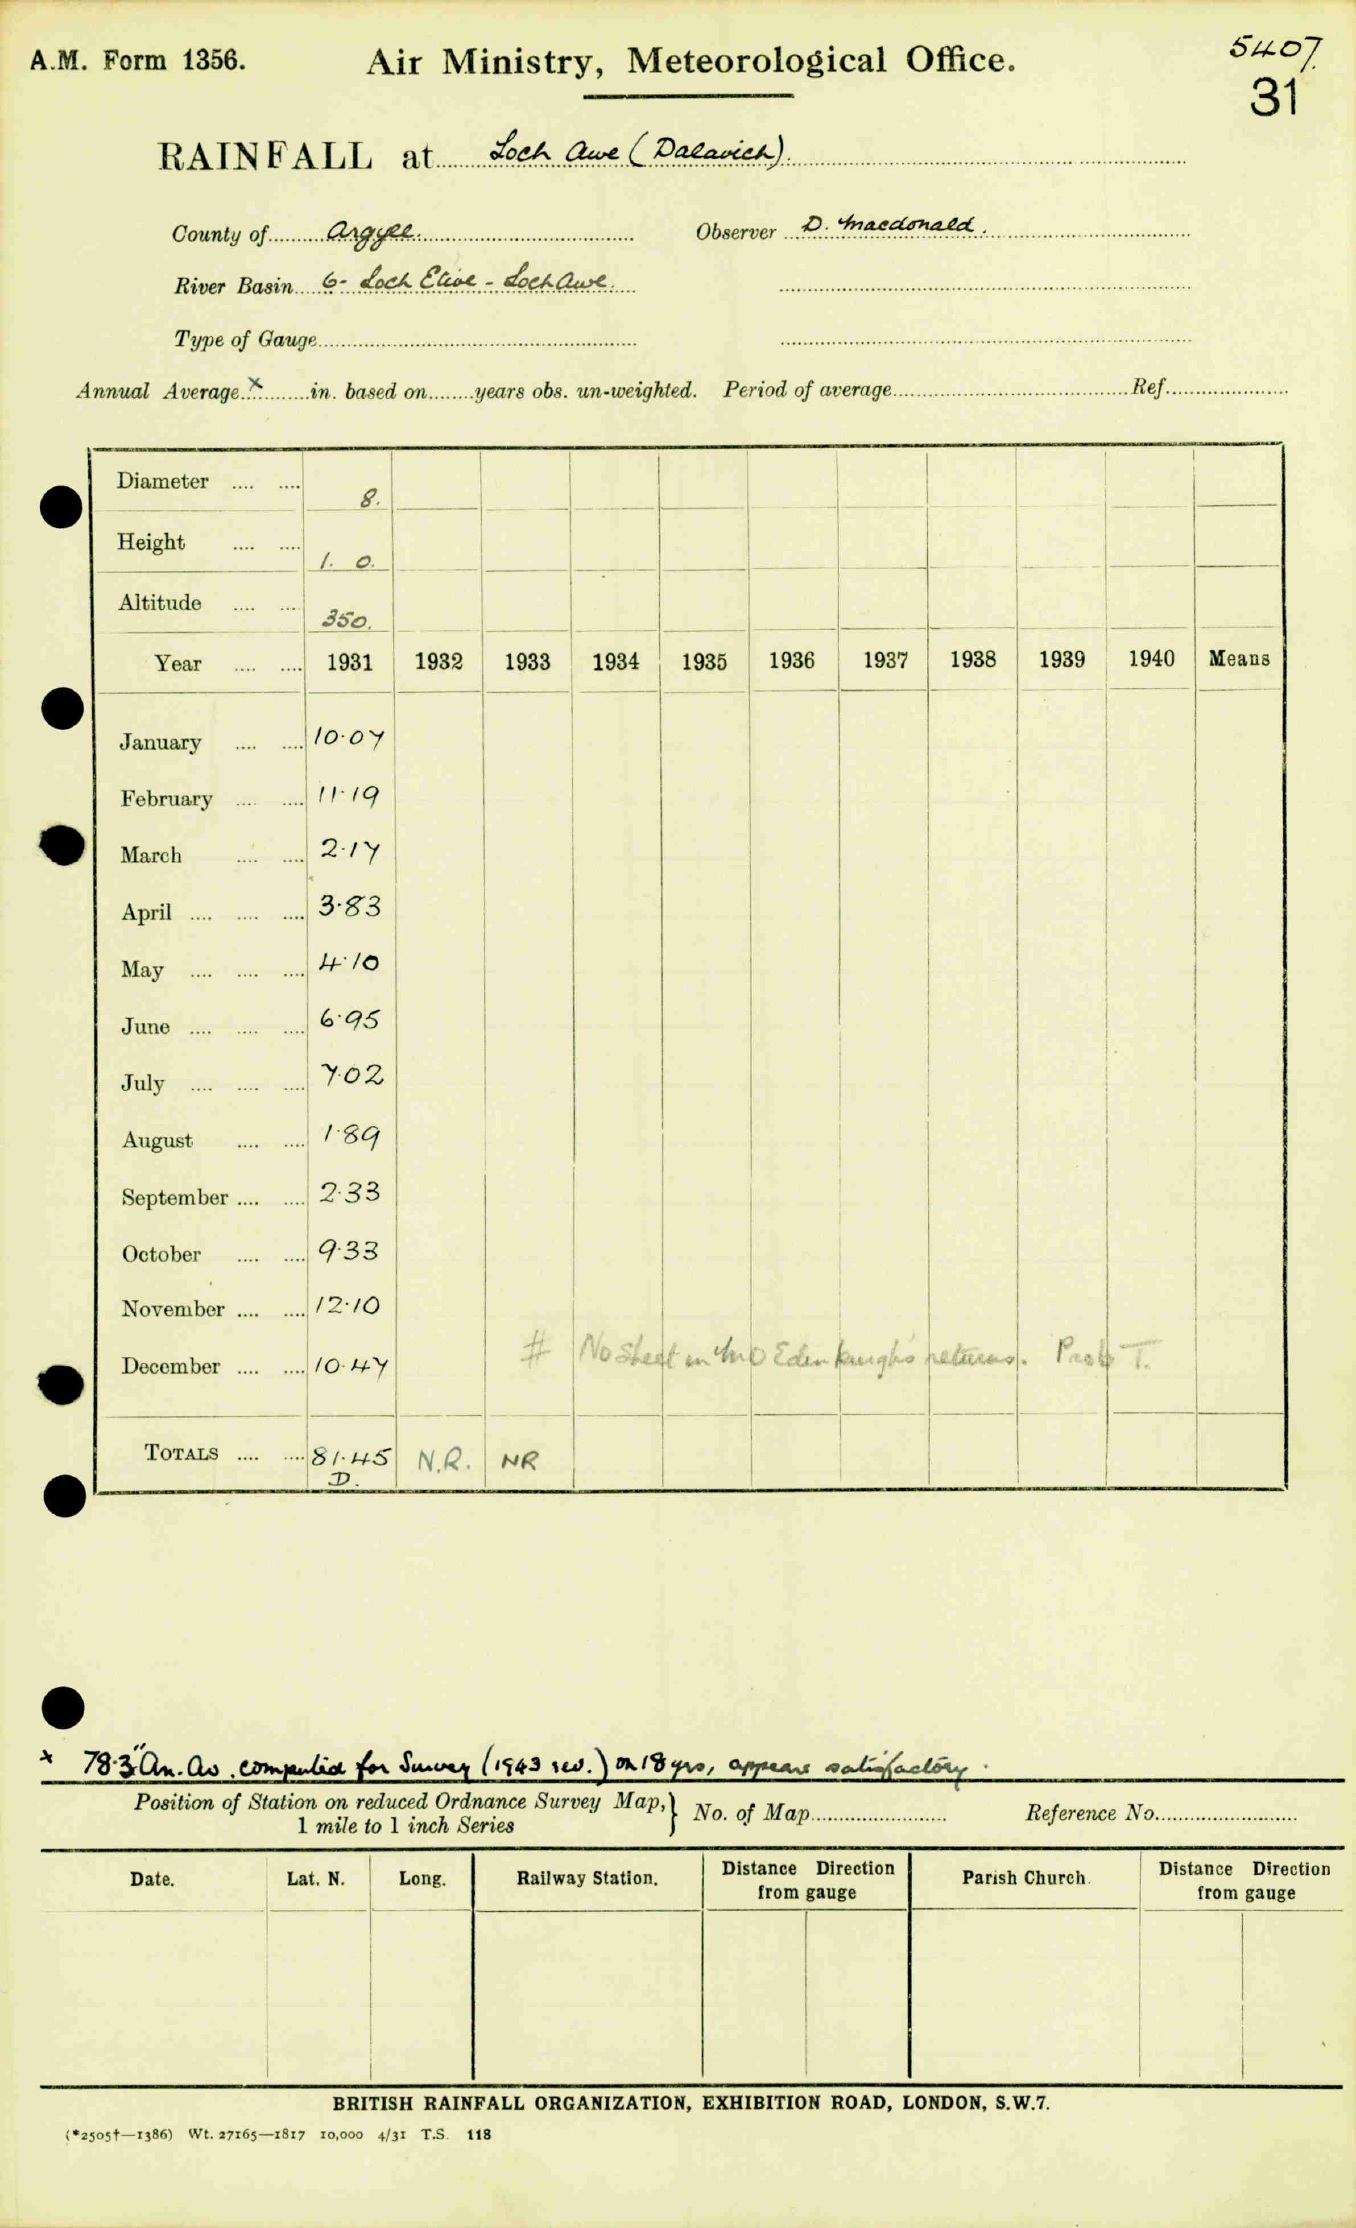 A.M. Form 1356. Air Ministry, Meteorological Office. 5407.
31
RAINFALL at Loch Awe (Dalavich).
County of Argyll. Observer D. Macdonald.
River Basin 6- Loch Etive - Loch Awe.
Type of Gauge
Annual Average x in. based on years obs. un-weighted. Period of average Ref.
Diameter 8.
Height 1. 0.
Altitude 350.
Year 1931 1932 1933 1934 1935 1936 1937 1938 1939 1940 Means
January 10.07
February 11.19
March 2.17
April 3.83
May 4.10
June 6.95
July 7.02
August 1.89
September 2.33
October 9.33
November 12.10
# No sheet in MO Edinburgh's returns. Prob T.
December 10.47
TOTALS 81.45 N.R. NR
D.
x 78.3" An. Av. computed for Survey (1943 rev.) on 18 yrs, appears satisfactory.
Position of Station on reduced Ordnance Survey Map, } No. of Map Reference No.
1 mile to 1 inch Series
Date. Lat. N. Long. Railway Station. Distance Direction from gauge Parish Church. Distance Direction from gauge
BRITISH RAINFALL ORGANIZATION, EXHIBITION ROAD, LONDON, S.W.7.
(*2505†—1386) Wt. 27165—1817 10,000 4/31 T.S. 118